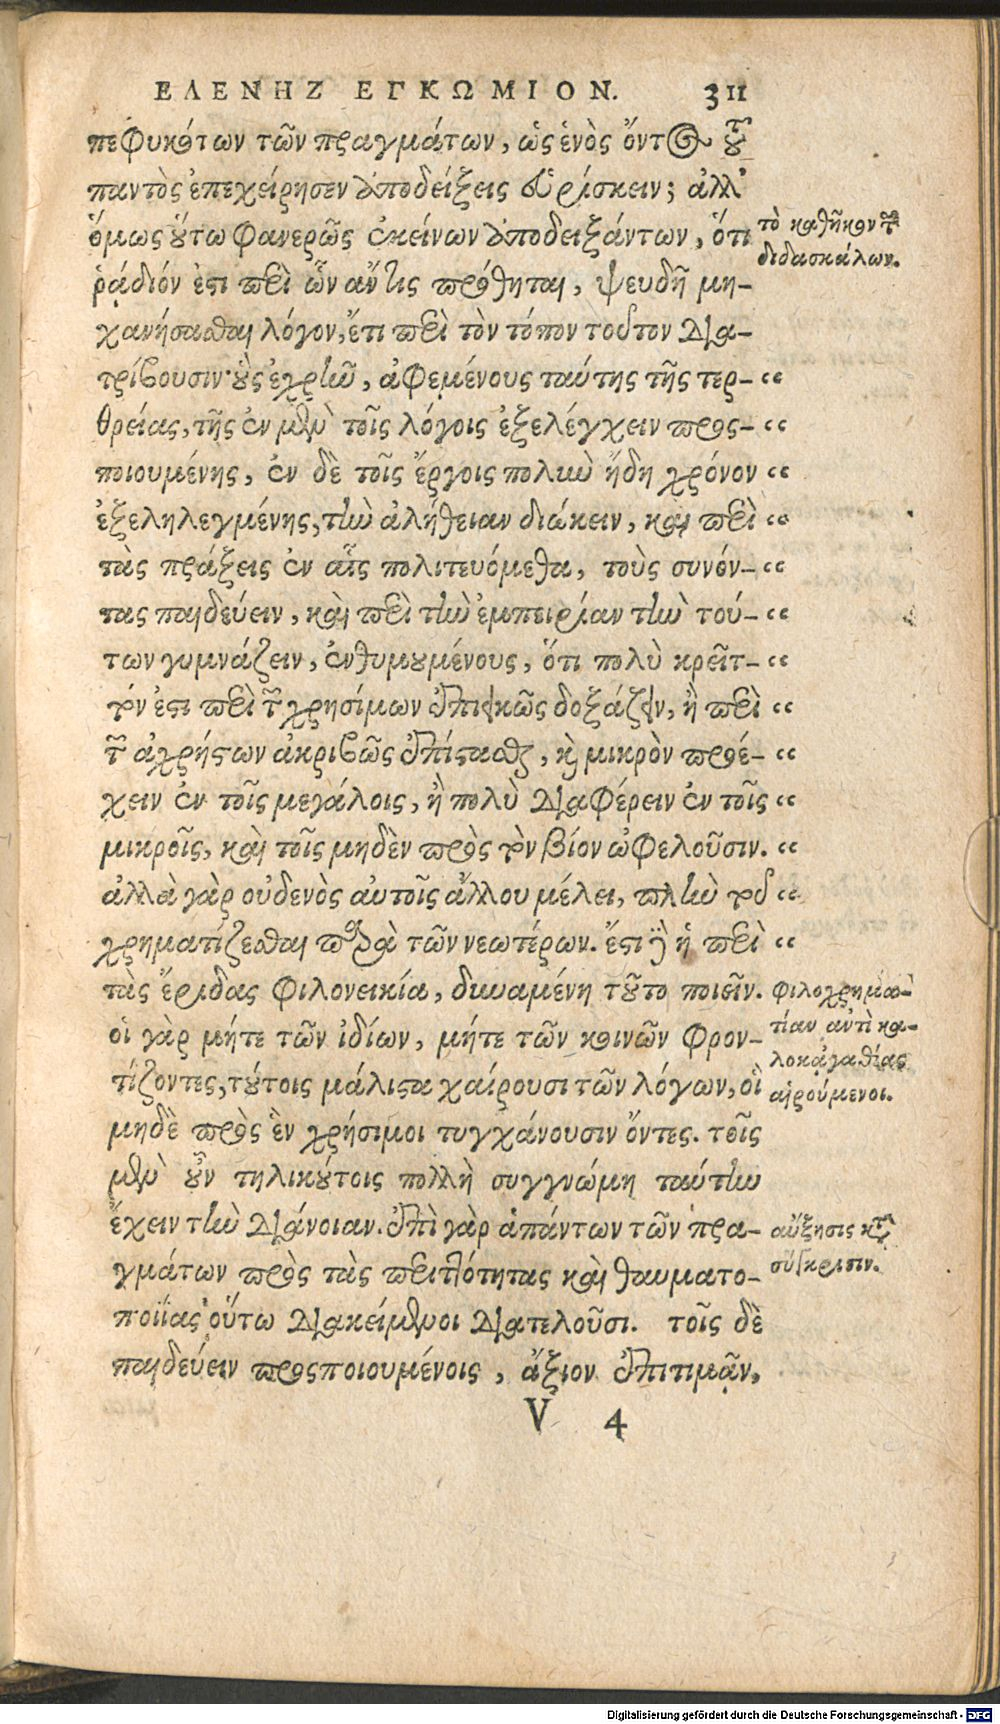 ΕΛΕΝΗΖ ΕΓΚΩΜΙΟΝ. 311
πεφυκότων τῶν πραγμάτων, ὡς ἑνὸς ὄντος τοῦ
παντὸς ἐπεχείρησεν ἀποδείξεις εὑρίσκειν; ἀλλ'
ὅμως οὕτω φανερῶς ἐκείνων ἀποδειξάντων, ὅτι
ῥᾴδιόν ἐστι περὶ ὧν ἄν τις πρόθηται, ψευδῆ μη-
χανήσασθαι λόγον, ἔτι περὶ τὸν τόπον τοῦτον δια-
τρίβουσιν· οὓς ἐχρῆν, ἀφεμένους ταύτης τῆς τερ- “
θρείας, τῆς ἐν μὲν τοῖς λόγοις ἐξελέγχειν προς- “
ποιουμένης, ἐν δὲ τοῖς ἔργοις πολὺν ἤδη χρόνον “
ἐξεληλεγμένης, τὴν ἀλήθειαν διώκειν, καὶ περὶ “
τὰς πράξεις ἐν αἷς πολιτευόμεθα, τοὺς συνόν- “
τας παιδεύειν, καὶ περὶ τὴν ἐμπειρίαν τὴν τού- “
των γυμνάζειν, ἐνθυμουμένους, ὅτι πολὺ κρεῖτ- “
τόν ἐστι περὶ τῶν χρησίμων ἐπιεικῶς δοξάζειν, ἢ περὶ “
τῶν ἀχρήστων ἀκριβῶς ἐπίστασθαι, καὶ μικρὸν προέ- “
χειν ἐν τοῖς μεγάλοις, ἢ πολὺ διαφέρειν ἐν τοῖς “
μικροῖς, καὶ τοῖς μηδὲν πρὸς τὸν βίον ὠφελοῦσιν. “
ἀλλὰ γὰρ οὐδενὸς αὐτοῖς ἄλλου μέλει, πλὴν τοῦ “
χρηματίζεσθαι παρὰ τῶν νεωτέρων. ἔστι δ' ἡ περὶ “
τὰς ἔριδας φιλονεικία, δυναμένη τοῦτο ποιεῖν.
οἱ γὰρ μήτε τῶν ἰδίων, μήτε τῶν κοινῶν φρον-
τίζοντες, τούτοις μάλιστα χαίρουσι τῶν λόγων, οἳ
μηδὲ πρὸς ἓν χρήσιμοι τυγχάνουσιν ὄντες. τοῖς
μὲν οὖν τηλικούτοις πολλὴ συγγνώμη ταύτην
ἔχειν τὴν διάνοιαν. ἐπὶ γὰρ ἁπάντων τῶν πρα-
γμάτων πρὸς τὰς περιττότητας καὶ θαυματο-
ποιΐας οὕτω διακείμενοι διατελοῦσι. τοῖς δὲ
παιδεύειν προςποιουμένοις, ἄξιον ἐπιτιμᾷν,
V 4
τὸ καθῆκον τῶν
διδασκάλων.
φιλοχρημα-
τίαν ἀντὶ κα-
λοκἀγαθίας
αἱρούμενοι.
αὔξησις κατὰ
σύγκρισιν.
Digitalisierung gefördert durch die Deutsche Forschungsgemeinschaft - DFG